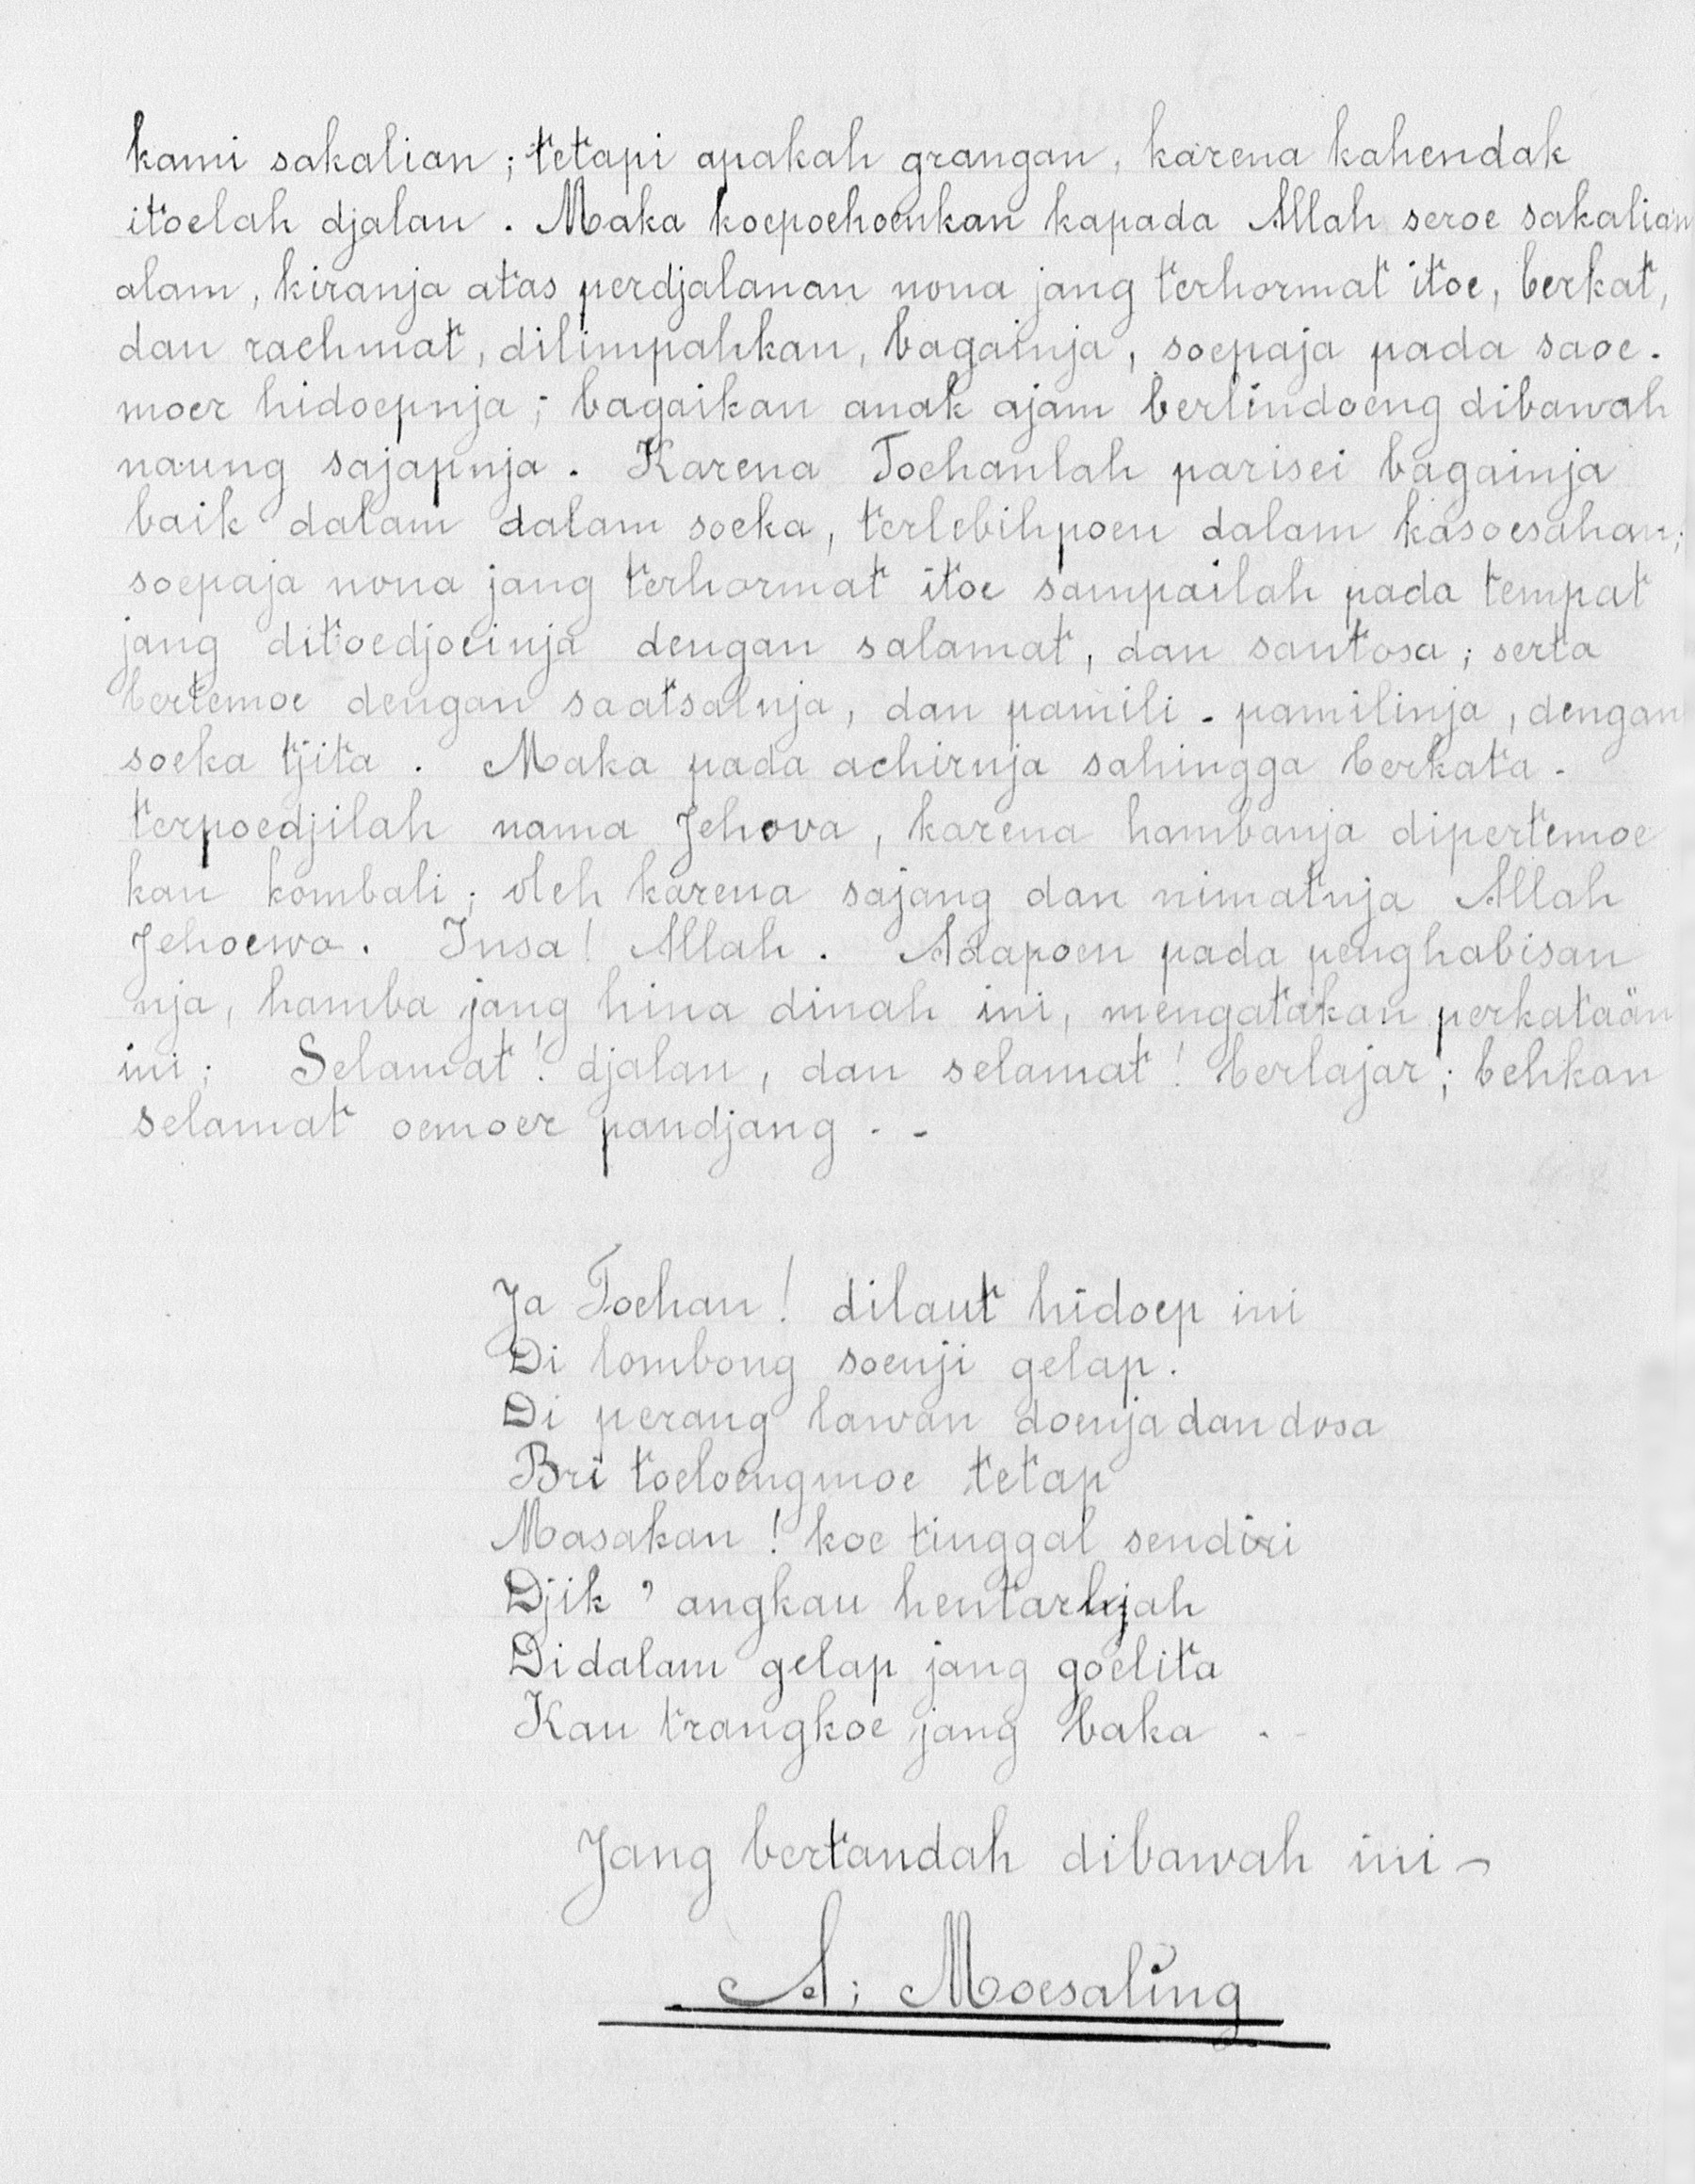 kami sakalian ; tetapi apakah grangan, karena kahendak
itoelah djalan . Maka koepoehoenkan kapada Allah seroe sakalian
alam, kiranja atas perdjalanan nona jang terhormat itoe, berkat,
dan rachmat, dilimpahkan, bagainja, soepaja pada saoe-
moer hidoepnja ; bagaikan anak ajam berlindoeng dibawah
naung sajapnja . Karena Toehanlah parisei bagainja
baik dalam dalam soeka, terlebihpoen dalam kasoesahan;
soepaja nona jang terhormat itoe sampailah pada tempat
jang ditoedjoeinja dengan salamat, dan santosa ; serta
bertemoe dengan saatsalnja, dan pamili - pamilinja, dengan
soeka tjita . Maka pada achirnja sahingga berkata .
terpoedjilah nama Jehova, karena hambanja dipertemoe
kan kombali ; oleh karena sajang dan nimatnja Allah
Jehoewa . Insa ! Allah . Adapoen pada penghabisan
nja, hamba jang hina dinah ini, mengatakan perkataän
ini ; Selamat ! djalan, dan selamat ! berlajar ; behkan
selamat oemoer pandjang . -
Ja Toehan ! dilaut hidoep ini
Di lombong soenji gelap .
Di perang lawan doenja dan dosa
Bri toeloengmoe tetap
Masakan ! koe tinggal sendiri
Djik ' angkau hentarkjah
Didalam gelap jang goelita
Kau trangkoe jang baka . -
Jang bertandah dibawah ini -
A ; Moesaling